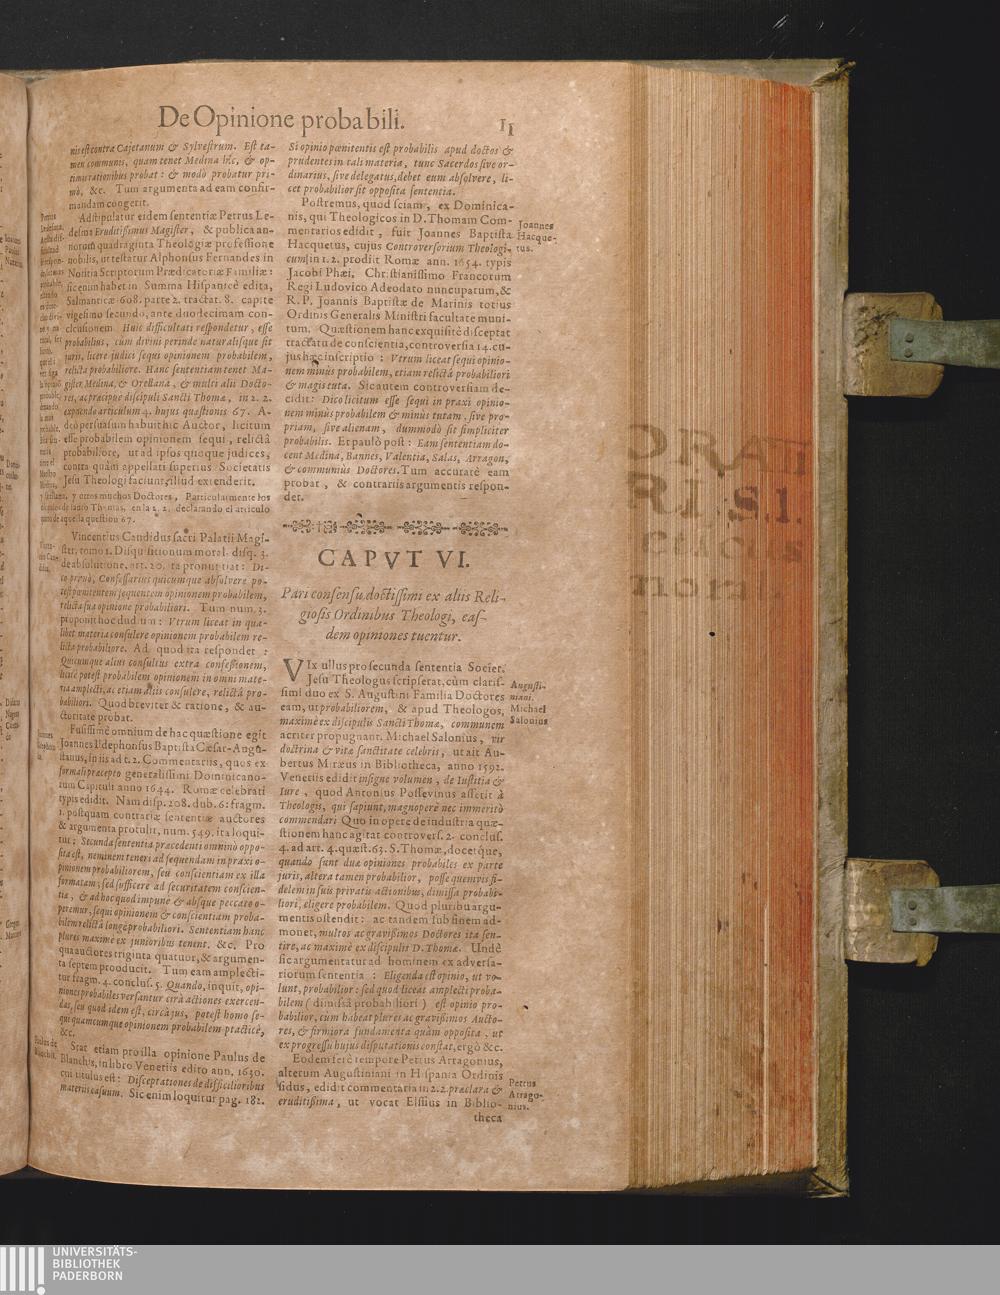 De Opinione probabili.
11
nis est contra Cajetanum & Sylvestrum. Est ta-
men communis, quam tenet Medina hîc, & op-
timis rationibus probat: & modò probatur pri-
mò, &c. Tum argumenta ad eam confir-
mandam congerit.
Adstipulatur eidem sententiæ Petrus Le-
desma Eruditissimus Magister, & publica an-
norum quadraginta Theologiæ professione
nobilis, ut testatur Alphonsus Fernandes in
Notitia Scriptorum Prædicatoriæ Familiæ:
sic enim habet in Summa Hispanicè edita,
Salmanticæ 608. parte 2. tractat. 8. capite
vigesimo secundo, ante duodecimam con-
clusionem Huic difficultati respondetur, esse
probabilius, cùm divini perinde naturalisque sit
juris, licere judici sequi opinionem probabilem,
relictâ probabiliore. Hanc sententiam tenet Ma-
gister Medina, & Orellana, & multi alii Docto-
res, ac præcipuè discipuli Sancti Thomæ, in 2. 2.
exponendo articulum 4. hujus quæstionis 67. A-
deò persuasum habuit hic Auctor, licitum
esse probabilem opinionem sequi, relictâ
probabiliore, ut ad ipsos quoque judices,
contra quàm appellati superius Societatis
Jesu Theologi faciunt, illud extenderit.
y Orellana, y otros muchos Doctores, Particularmente los
discipulos de santo Thomas, en la 2. 2. declarando el articulo
quarto de aquella question 67.
Vincentius Candidus sacri Palatii Magi-
ster, tomo 1. Disquisitionum moral. disq. 3.
de absolutione, art. 20. ita pronuntiat: Di-
co primò, Confessarius quicumque absolvere po-
test pœnitentem sequentem opinionem probabilem,
relicta sua opinione probabiliori. Tum num. 3.
proponit hoc dudum: Vtrum liceat in qua-
libet materia consulere opinionem probabilem re-
lictâ probabiliore. Ad quod ita respondet:
Quicumque alius consultus extra confessionem,
licitè potest probabilem opinionem in omni mate-
ria amplecti, ac etiam aliis consulere, relictâ pro-
babiliori. Quod breviter & ratione, & au-
ctoritate probat.
Fusissimè omnium de hac quæstione egit
Joannes Ildephonsus Baptista Cæsar-Augu-
stanus, in iis ad 1. 2. Commentariis, quos ex
formali præcepto generalissimi Dominicano-
rum Capituli anno 1644. Romæ celebrati
typis edidit. Nam disp. 208. dub. 6. fragm.
1. postquam contrariæ sententiæ auctores
& argumenta protulit, num. 549. ita loqui-
tur: Secunda sententia præcedenti omninò oppo-
sita est, neminem teneri ad sequendam in praxi o-
pinionem probabiliorem, seu conscientiam ex illa
formatam; sed sufficere ad securitatem conscien-
tiæ, & ad hoc quod impunè & absque peccato o-
peremur, sequi opinionem & conscientiam proba-
bilem relictâ longè probabiliori. Sententiam hanc
plures maximè ex junioribus tenent. &c. Pro
qua auctores triginta quatuor, & argumen-
ta septem producit. Tum eam amplecti-
tur fragm. 4. conclus. 5. Quando, inquit, opi-
niones probabiles versantur circà actiones exercen-
das, seu quod idem est, circà jus, potest homo se-
qui quamcumque opinionem probabilem practicè,
&c.
Stat etiam pro illa opinione Paulus de
Blanchis, in libro Venetiis edito ann. 1630.
cui titulus est: Disceptationes de difficilioribus
materiis casuum. Sic enim loquitur pag. 182.
Si opinio pœnitentis est probabilis apud doctos &
prudentes in tali materia, tunc Sacerdos sive or-
dinarius, sive delegatus, debet eum absolvere, li-
cet probabilior sit opposita sententia.
Postremus, quod sciam, ex Dominica-
nis, qui Theologicos in D. Thomam Com-
mentarios edidit, fuit Joannes Baptista
Hacquetus, cujus Controversorium Theologi-
cum in 1. 2. prodiit Romæ ann. 1654. typis
Jacobi Phæi, Christianissimo Francorum
Regi Ludovico Adeodato nuncupatum, &
R. P. Joannis Baptistæ de Marinis totius
Ordinis Generalis Ministri facultate muni-
tum. Quæstionem hanc exquisitè disceptat
tractatu de conscientia, controversia 14. cu-
jus hæc inscriptio: Vtrum liceat sequi opinio-
nem minùs probabilem, etiam relictâ probabiliori
& magis tuta. Sic autem controversiam de-
cidit: Dico licitum esse sequi in praxi opinio-
nem minùs probabilem & minùs tutam, sive pro-
priam, sive alienam, dummodò sit simpliciter
probabilis. Et paulò post: Eam sententiam do-
cent Medina, Bannes, Valentia, Salas, Arragon,
& communiùs Doctores. Tum accuratè eam
probat, & contrariis argumentis respon-
det.
Joannes
Hacque-
tus.
CAPVT VI.
Pari consensu doctissimi ex aliis Reli-
giosis Ordinibus Theologi, eas-
dem opiniones tuentur.
VIx ullus pro secunda sententia Societ.
Jesu Theologus scripserat, cùm claris-
simi duo ex S. Augustini Familia Doctores
eam, ut probabiliorem, & apud Theologos,
maximè ex discipulis Sancti Thomæ, communem
acriter propugnant. Michael Salonius, vir
doctrina & vitæ sanctitate celebris, ut ait Au-
bertus Miræus in Bibliotheca, anno 1592.
Venetiis edidit insigne volumen, de Iustitia &
Iure, quod Antonius Possevinus asserit à
Theologis, qui sapiunt, magnopere nec immeritò
commendari Quo in opere de industria quæ-
stionem hanc agitat controvers. 2. conclus.
4. ad art. 4. quæst. 63. S. Thomæ, docetque,
quando sunt duæ opiniones probabiles ex parte
juris, altera tamen probabilior, posse quemvis fi-
delem in suis privatis actionibus, dimissa probabi-
liori, eligere probabilem. Quod pluribus argu-
mentis ostendit: ac tandem sub finem ad-
monet, multos ac gravissimos Doctores ita sen-
tire, ac maximè ex discipulis D. Thomæ. Undè
sic argumentatur ad hominem ex adversa-
riorum sententia: Eligenda est opinio, ut vo-
lunt, probabilior: sed quod liceat amplecti proba-
bilem (dimissâ probabiliori) est opinio pro-
babilior, cum habeat plures ac gravissimos Aucto-
res, & firmiora fundamenta quàm opposita, ut
ex progressu hujus disputationis constat, ergò &c.
Eodem ferè tempore Petrus Arragonius,
alterum Augustiniani in Hispania Ordinis
sidus, edidit commentaria in 2. 2. præclara &
eruditissima, ut vocat Elssius in Biblio-
theca
Augusti-
niani.
Michael
Salonius
Petrus
Arrago-
nius.
UNIVERSITÄTS-
BIBLIOTHEK
PADERBORN